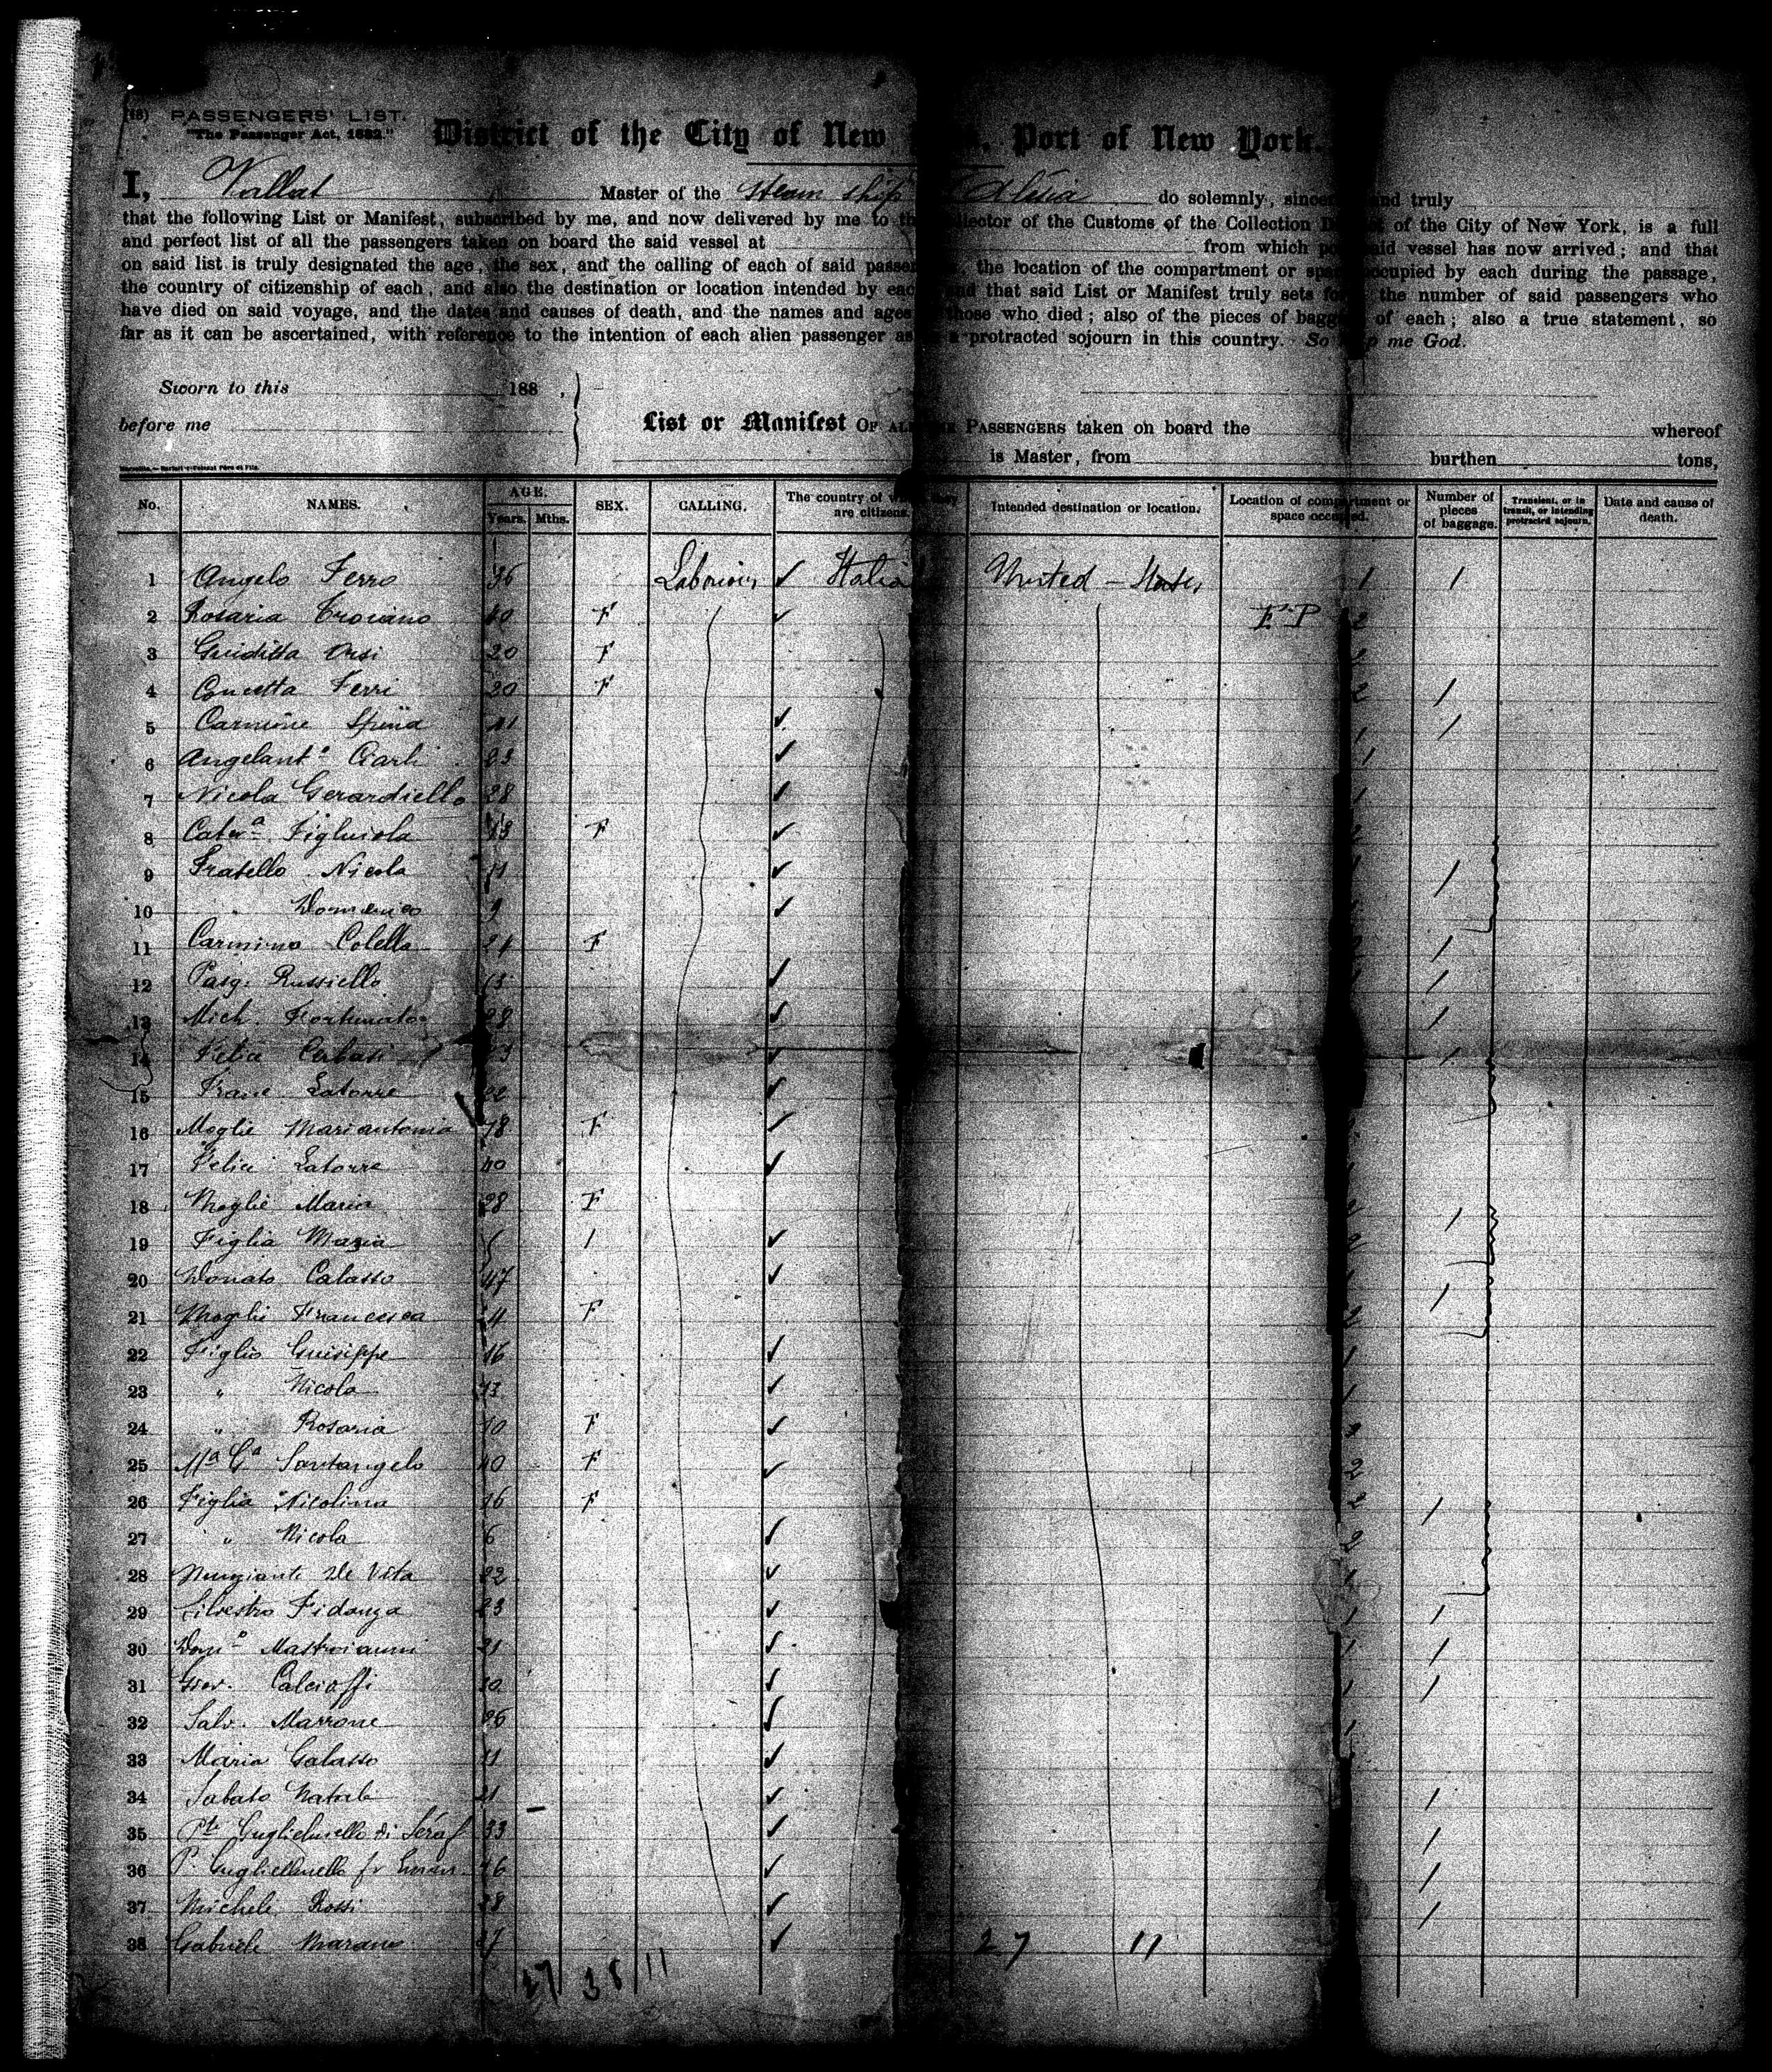 (18) PASSENGERS' LIST.
"The Passenger Act, 1882."
District of the City of New Port of New York.
I, Vallat Master of the Steam ship Alesia do solemnly, and truly
that the following List or Manifest, subscribed by me, and now delivered by me to the Collector of the Customs of the Collection District of the City of New York, is a full
and perfect list of all the passengers taken on board the said vessel at from which port said vessel has now arrived; and that
on said list is truly designated the age, the sex, and the calling of each of said passengers, the location of the compartment or space occupied by each during the passage,
the country of citizenship of each, and also the destination or location intended by each and that said List or Manifest truly sets forth the number of said passengers who
have died on said voyage, and the dates and causes of death, and the names and ages those who died; also of the pieces of baggage of each; also a true statement, so
far as it can be ascertained, with reference to the intention of each alien passenger as a protracted sojourn in this country. So help me God.
Sworn to this 188 ,
before me
List or Manifest OF ALL THE PASSENGERS taken on board the whereof
is Master, from burthen tons,
No. NAMES. AGE. Years. Mths. SEX. CALLING. The country of which they are citizens. Intended destination or location. Location of compartment or space occupied. Number of pieces of baggage. Transient, or in transit, or intending protracted sojourn. Date and cause of death.
1 Angelo Ferro 36 Italia United - States 1 1
2 Rosaria Troiano 40 F F P 2
3 Guiditta Orsi 20 F 2
4 Concetta Ferri 20 F 2 1
5 Carmine Spina 41 1 1
6 Angelant° Ciarli 23 1
7 Nicola Gerardiello 28 1
8 Cater.a Figluiola 13 F 2
9 Fratello Nicola 11 1 1
10 " Domenico 9
11 Carmina Colella 21 F 2 1
12 Pasq. Russiello 1
13 Mich. Fortunato 28 1
14 Felice 1
15 Franc Latorre 22
16 Moglie Mariantonia 18 F
17 Felice Latorre 40
18 Moglie Maria 28 F 2 1
19 Figlia Maria 2
20 Donato Calasso 47 1 1
21 Moglie Francesca F 2
22 Figlio Guiseppe 16 1
23 " Nicola 1
24 " Rosaria 10 F 2
25 Ma Ga Santangelo 40 F 2
26 Figlia Nicolina 16 F 2 1
27 " Nicola 6 2
28 Nunziante De Vita 22 1
29 Silvestro Fidanza 23 1 1
30 Dom° Mastroianni 21 1 1
31 Giov. Calcioffi 1 1
32 Salv. Marrone 26 1
33 Maria Galasso 11
34 Sabato Natale 21 1
35 Guglielmello di Seraf 33 1
36 P. Guglielmello fu 46 1
37 Michele Rossi 28 1
38 Gabriele Marano 27 27 11
27 38 11